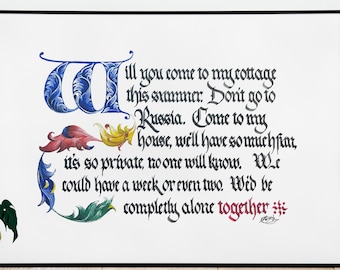 Will you come to my cottage
this summer. Don't go to
Russia. Come to my
house, we'll have so much fun,
it's so private, no one will know. We
could have a week or even two. We'd be
completly alone together